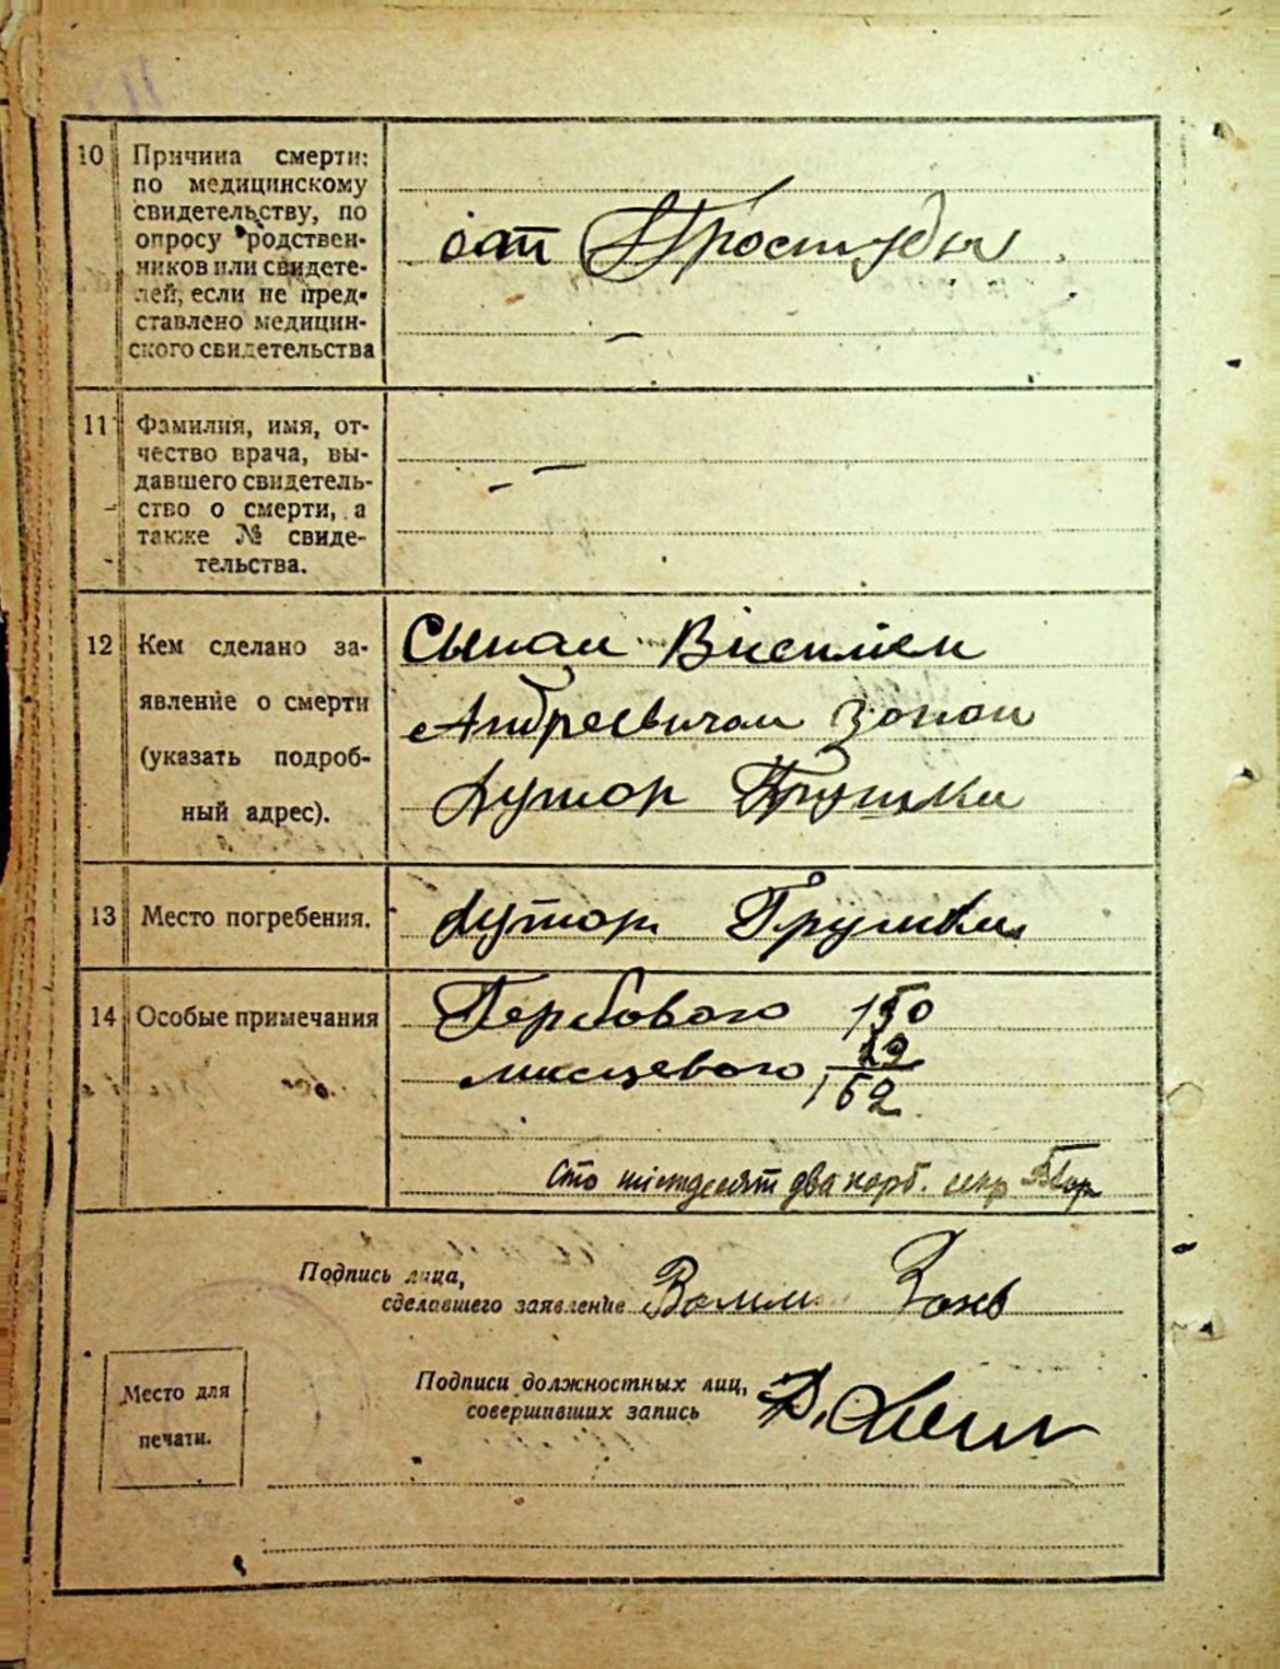 10 Причина смерти:
по медицинскому
свидетельству, по
опросу родствен-
ников или свидете-
лей, если не пред-
ставлено медицин-
ского свидетельства
от Простуды
11 Фамилия, имя, от-
чество врача, вы-
давшего свидетель-
ство о смерти, а
также № свиде-
тельства.
12 Кем сделано за-
явление о смерти
(указать подроб-
ный адрес).
Сыном
Андреевичом
Хутор Грушки
13 Место погребения.
Хутор Грушки
14 Особые примечания
Гербового 150
мисцевого 12
162
Сто шістдесят два карб.
Подпись лица,
сделавшего заявление
Подписи должностных лиц,
совершивших запись
Место для
печати.